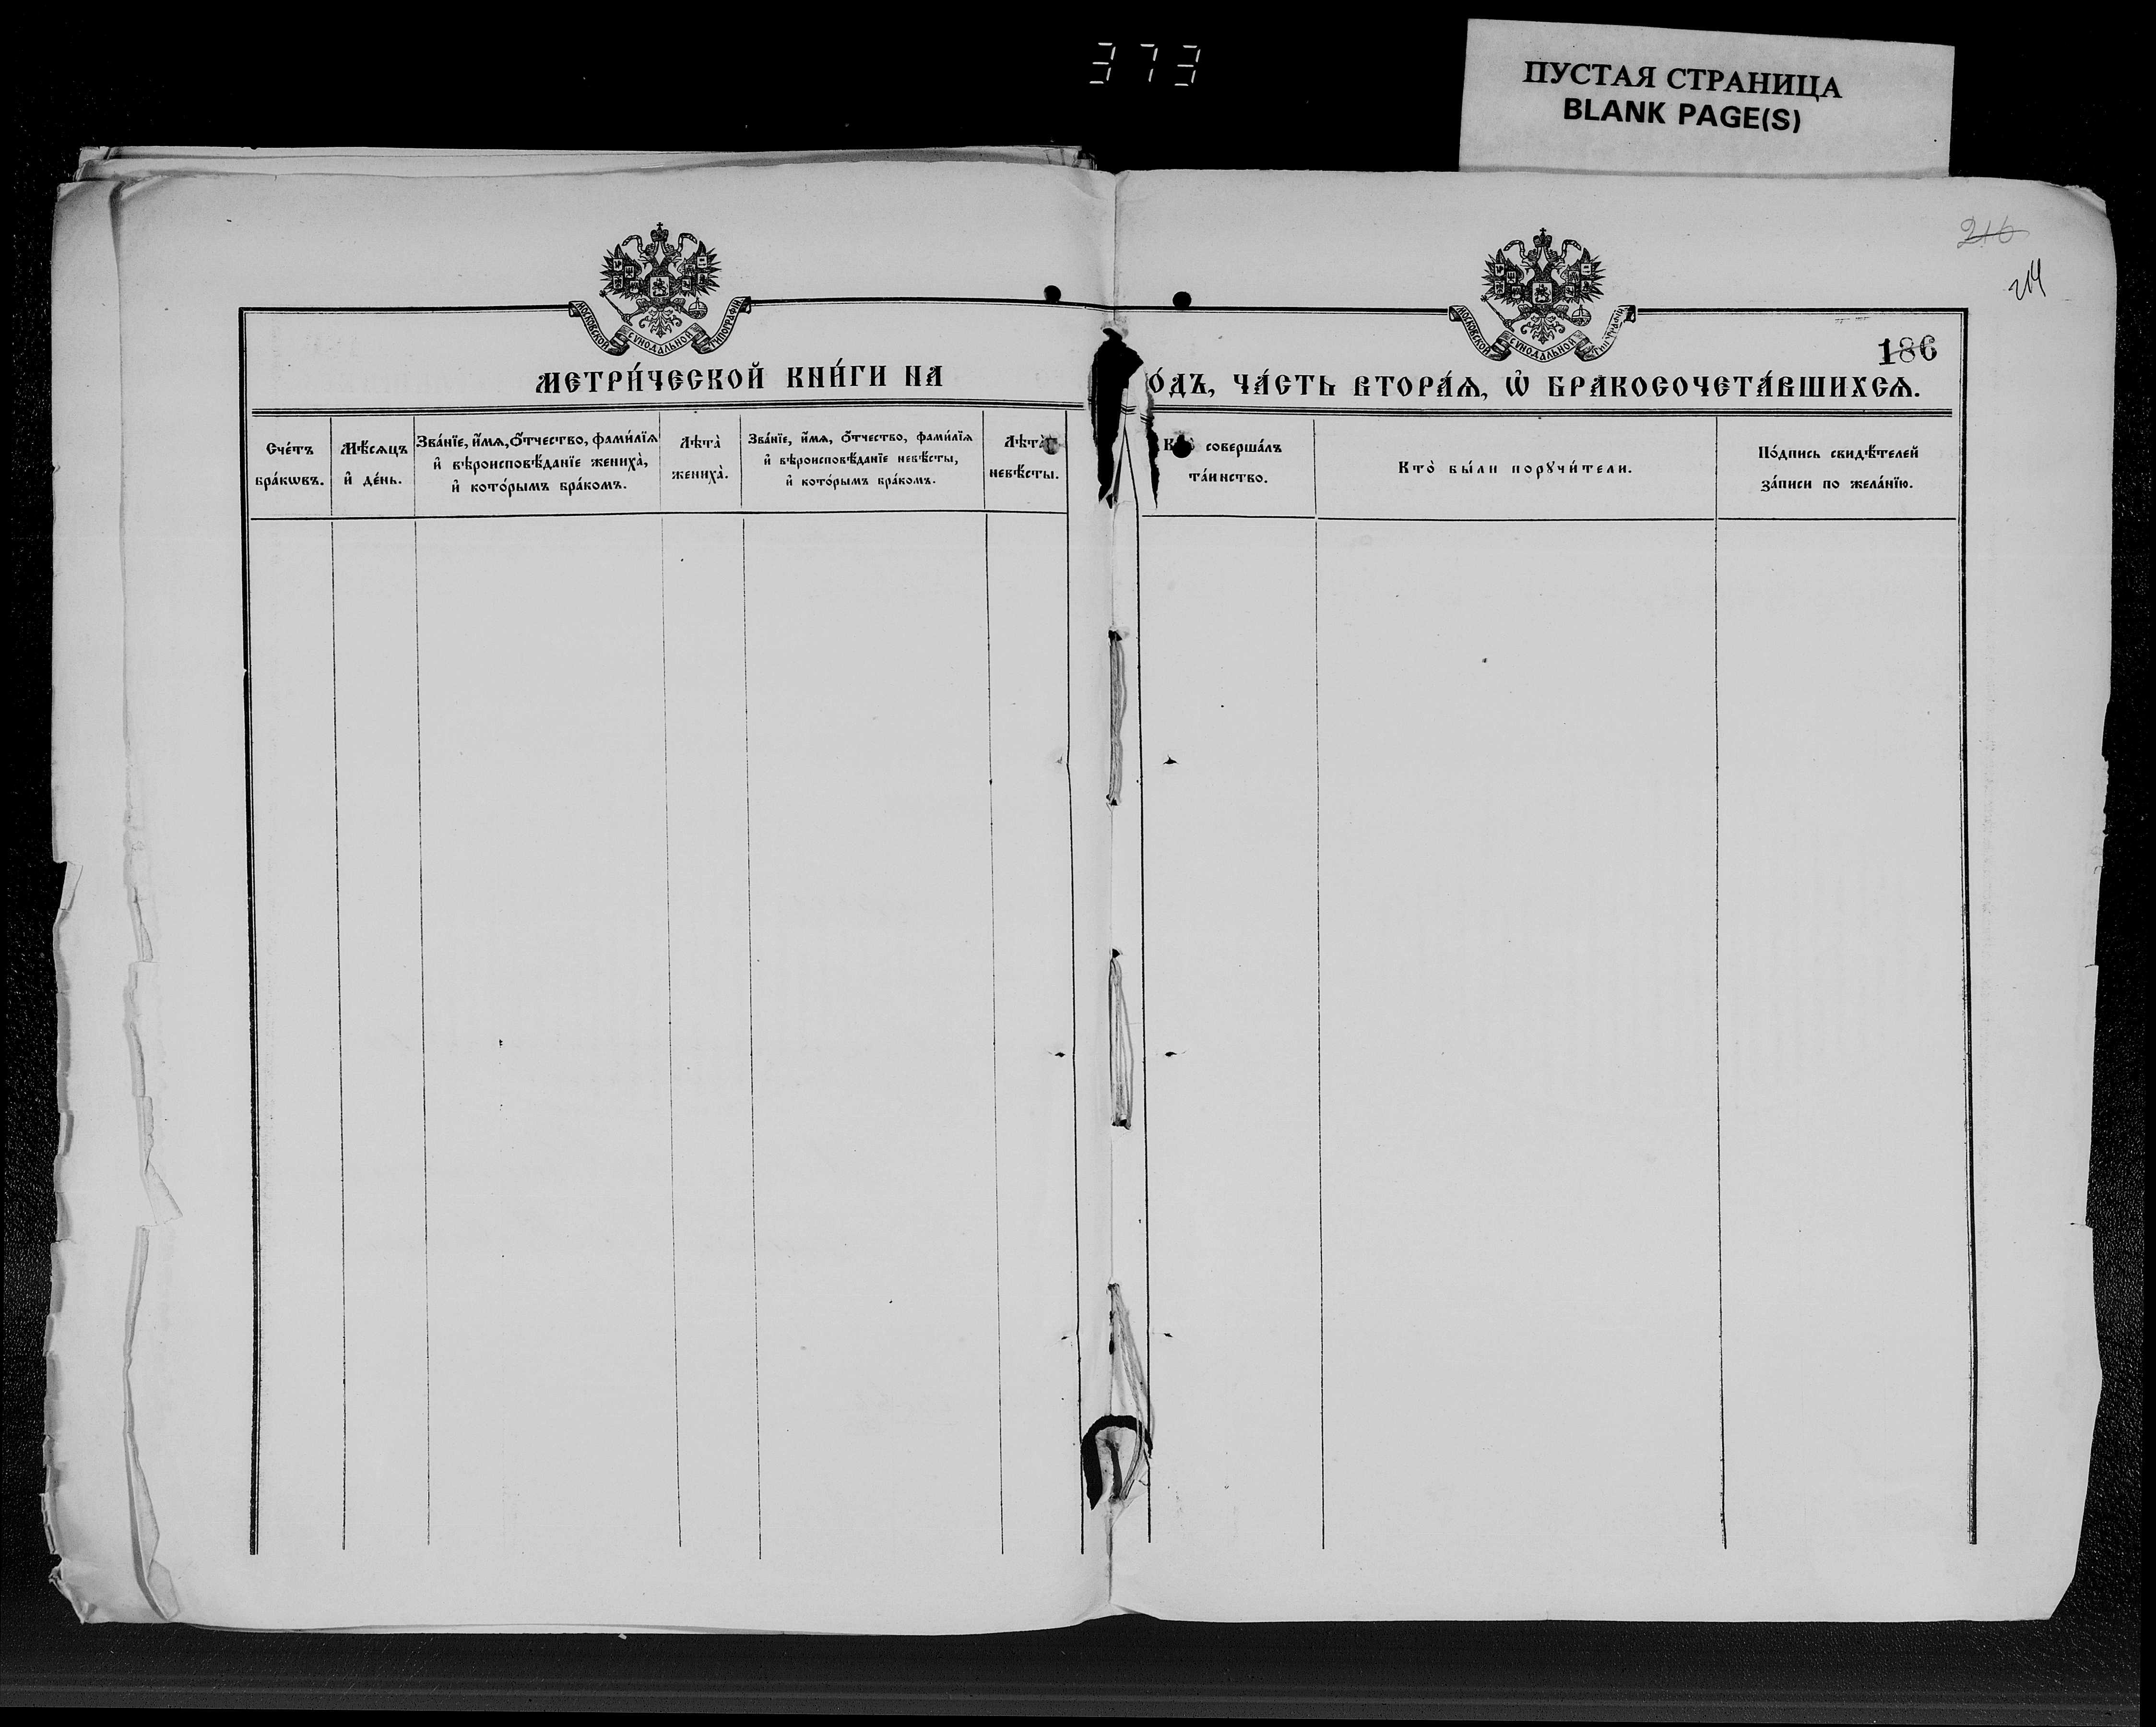 373
ПУСТАЯ СТРАНИЦА
BLANK PAGE(S)
216
214
186
МОСКОВСКОЙ СѴНОДАЛЬНОЙ ТИПОГРАФІИ
МОСКОВСКОЙ СѴНОДАЛЬНОЙ ТИПОГРАФІИ
МЕТРИ́ЧЕСКОЙ КНИ́ГИ НА
О́ДЪ, ЧА́СТЬ ВТОРА́Ѧ, Ѡ҆ БРАКОСОЧЕТА́ВШИХСѦ.
Сче́тъ
бра́кѡвъ.
Мѣ́сѧцъ
и҆ де́нь.
Зва́нїе, и҆́мѧ, ѻ҆́тчество, фамилїѧ
и҆ вѣроисповѣ́данїе жениха̀,
и҆ кото́рымъ бра́комъ.
Лѣта̀
жениха̀.
Зва́нїе, и҆́мѧ, ѻ҆́тчество, фами́лїѧ
и҆ вѣроисповѣ́данїе невѣ́сты,
и҆ кото́рымъ бра́комъ.
Лѣта̀
невѣ́сты.
соверша́лъ
та́инство.
Кто̀ бы́ли порꙋчи́тели.
По́дпись свидѣ́телей
за́писи по жела́нїю.